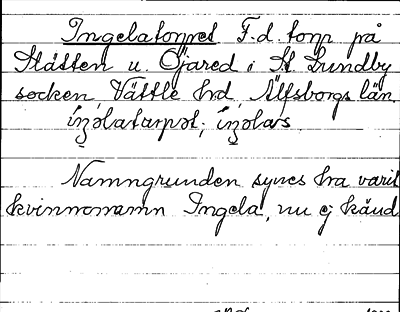 Ingelatorpet F.d. torp på
Slätten u. Öjared i St. Lundby
socken Vättle hrd, Älfsborgs län.
íŋəlatarpət; íŋəlas.
Namngrunden synes hra varit
kvinnonamn Ingela, nu ej känd